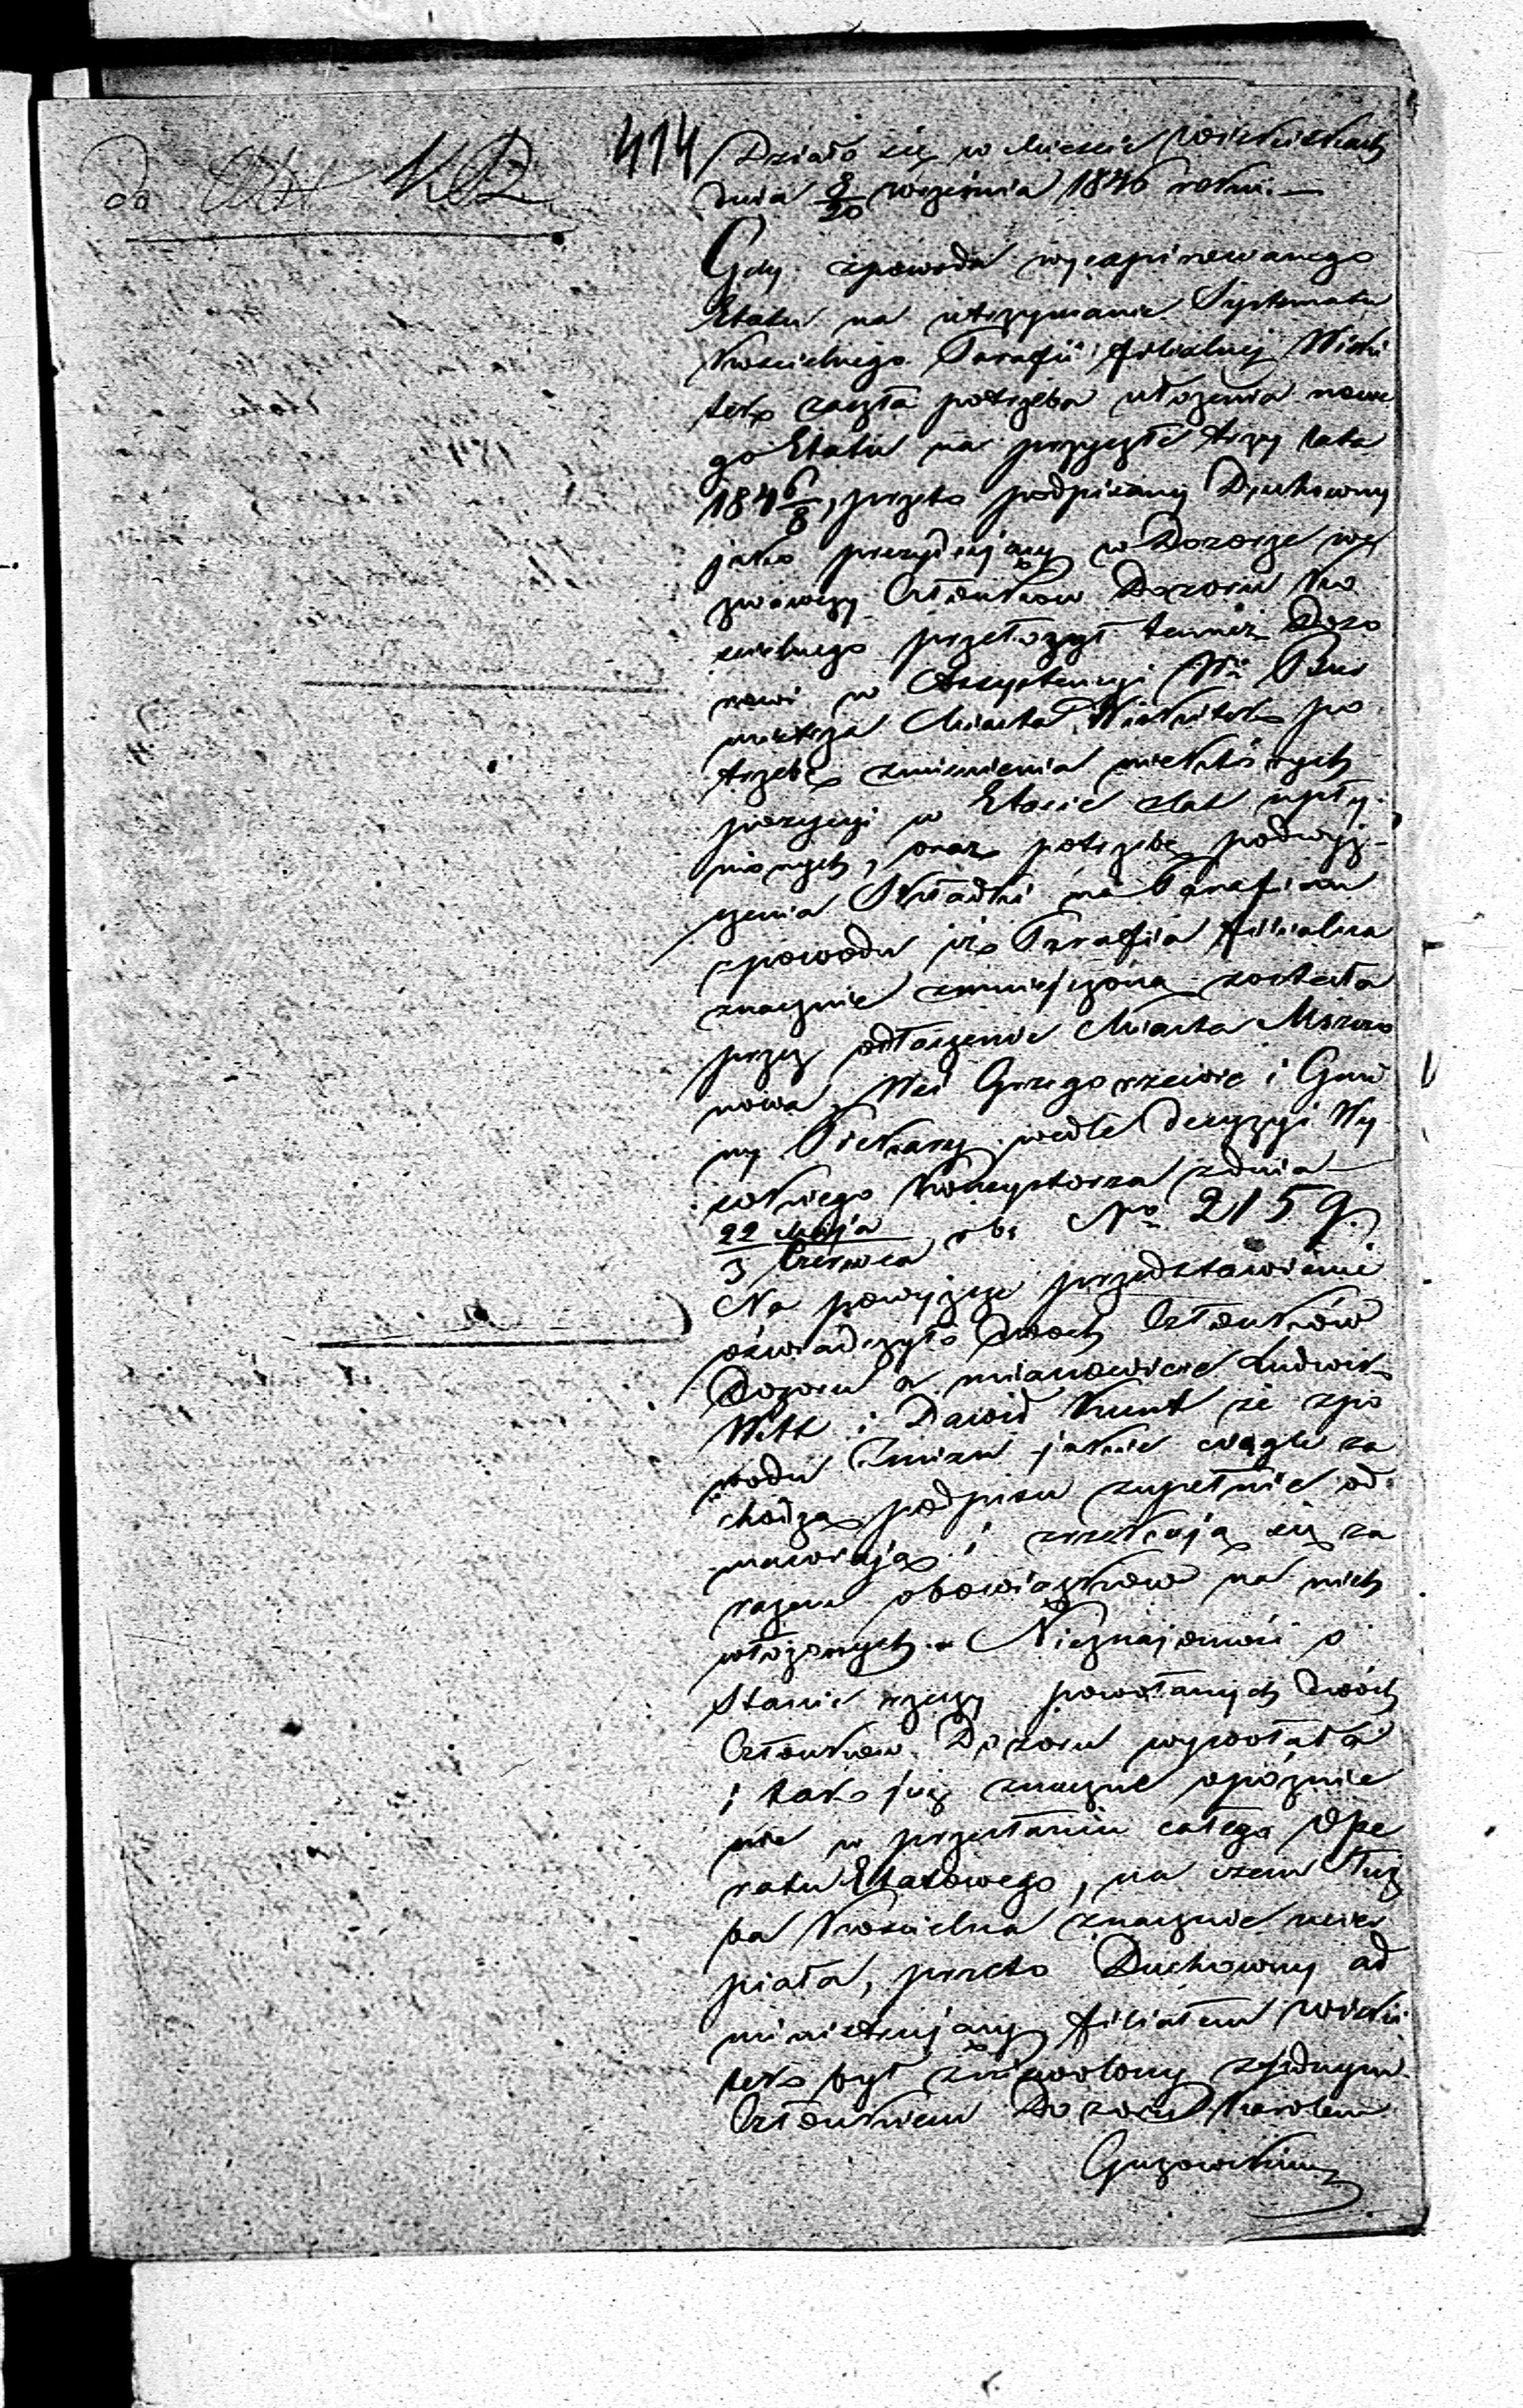 414
Działo się w Mieście Wiskitkach
dnia 8/20 września 1846 roku. —
Gdy zpowodu wyexpirowanego
Etatu na utrzymanie Systematu
Kościelnego Parafii filialnej Wiski
tek zaszła potrzeba ułożenia nowe
go Etatu na przyszłe trzy lata
1846/8, przeto podpisany Duchowny
jako prezydujący w Dozorze we
zwawszy Członków Dozoru Ko
scielnego przełożył temuż Dozo
rowi w Assystencyi Wo Bur
mistrza Miasta Wiskitek po
trzebę zmienienia niektórych
pozycyi w Etacie z lat upły-
nionych, oraz potrzebę podwyż-
szenia Składki na Parafian
zpowodu iż Parafia filialna
znacznie zmniejszoną została
przez odłączenie Miasta Mszczo
nowa, Wsi Grzegorzewic i Gmi
ny Piekary wedle decyzyi Wy
sokiego Konsystorza z dnia
22 Maja / 3 Czerwca r. b. No 2159.
Na powyższe przedstawienie
oświadczyło dwóch Członków
Dozoru a mianowicie Ludwik
Witt i Dawid Kunt że zpo
wodu zmian jakie ciągle za
chodzą podpisu zupełnie od
mawiają i zrzekają się za
razem obowiązków na nich
włożonych. Nieznajomość o
Stanie rzeczy powołanych dwóch
Członków Dozoru wywołała
i tak już znaczne opóźnie
nie w przesłaniu całego Ope
ratu Etatowego, na czem Służ
ba Kościelna znacznie ucier
piała, przeto Duchowny ad
ministrujący filiałem Wiski
tek był zniewolony z jednym
Członkiem Dozoru Karolem
Guzowskim